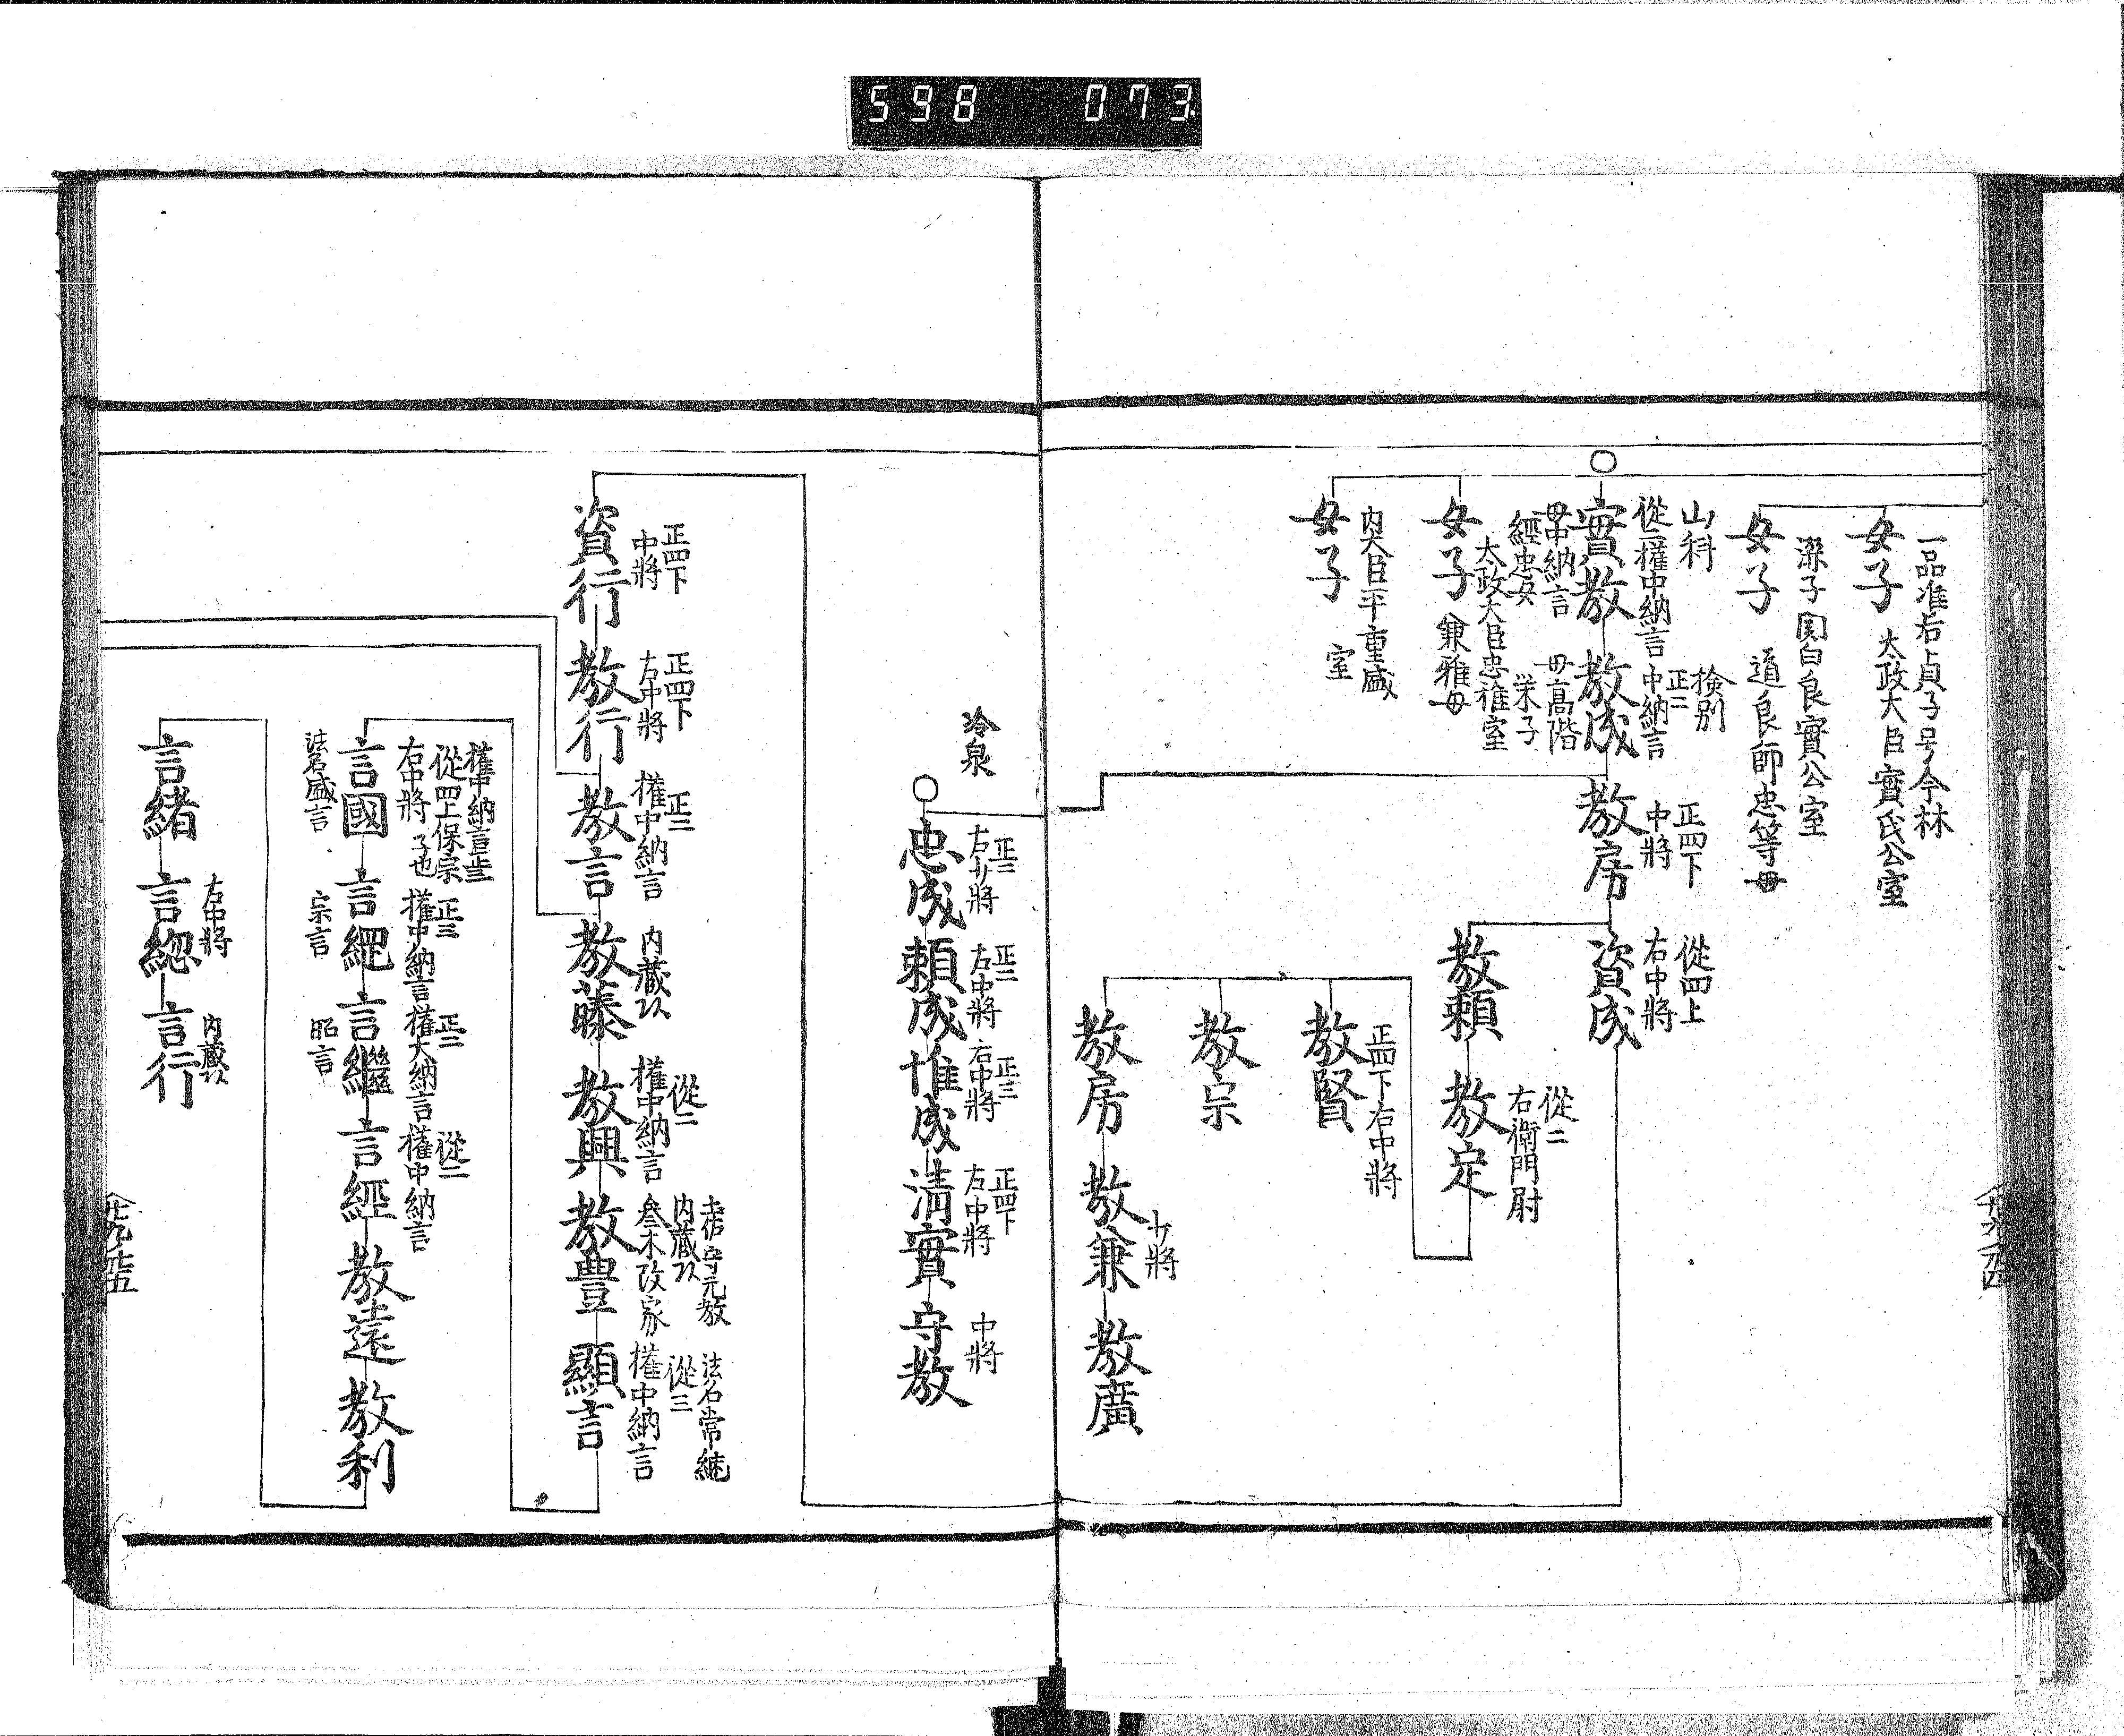 598 073
一品准后貞子号今林
女子 太政大臣實氏公室
関白良實公室
女子 道良師忠等母
山科
從二 權中納言
實教
母中納言
經忠女
検別
正二
中納言
教成
母高階
栄子
正四下
中將
教房
從四上
右中將
資成
太政大臣忠雅室
女子 兼雅母
内大臣平重盛
女子 室
教頼
從二
右衛門尉
教定
正四下右中將
教賢
教宗
教房
少將
教兼
教廣
冷泉
正三
右少將
忠成
正二
左中將
頼成
正三
右中將
惟成
正四下
左中將
清實
中將
守教
正四下
中將
資行
正四下
左中將
教行
正二
權中納言
教言
内藏頭
教藤
從二
權中納言
教興
内藏頭
参木改家
教豊
法名常繞
從三
權中納言
顯言
權中納言
從四上保宗
右中將 子也
言國
法名盛言
正三
權中納言
言綛
宗言
正二
權大納言
言繼
昭言
從二
權中納言
言經
教遠
教利
言緒
右中將
言總
内藏頭
言行